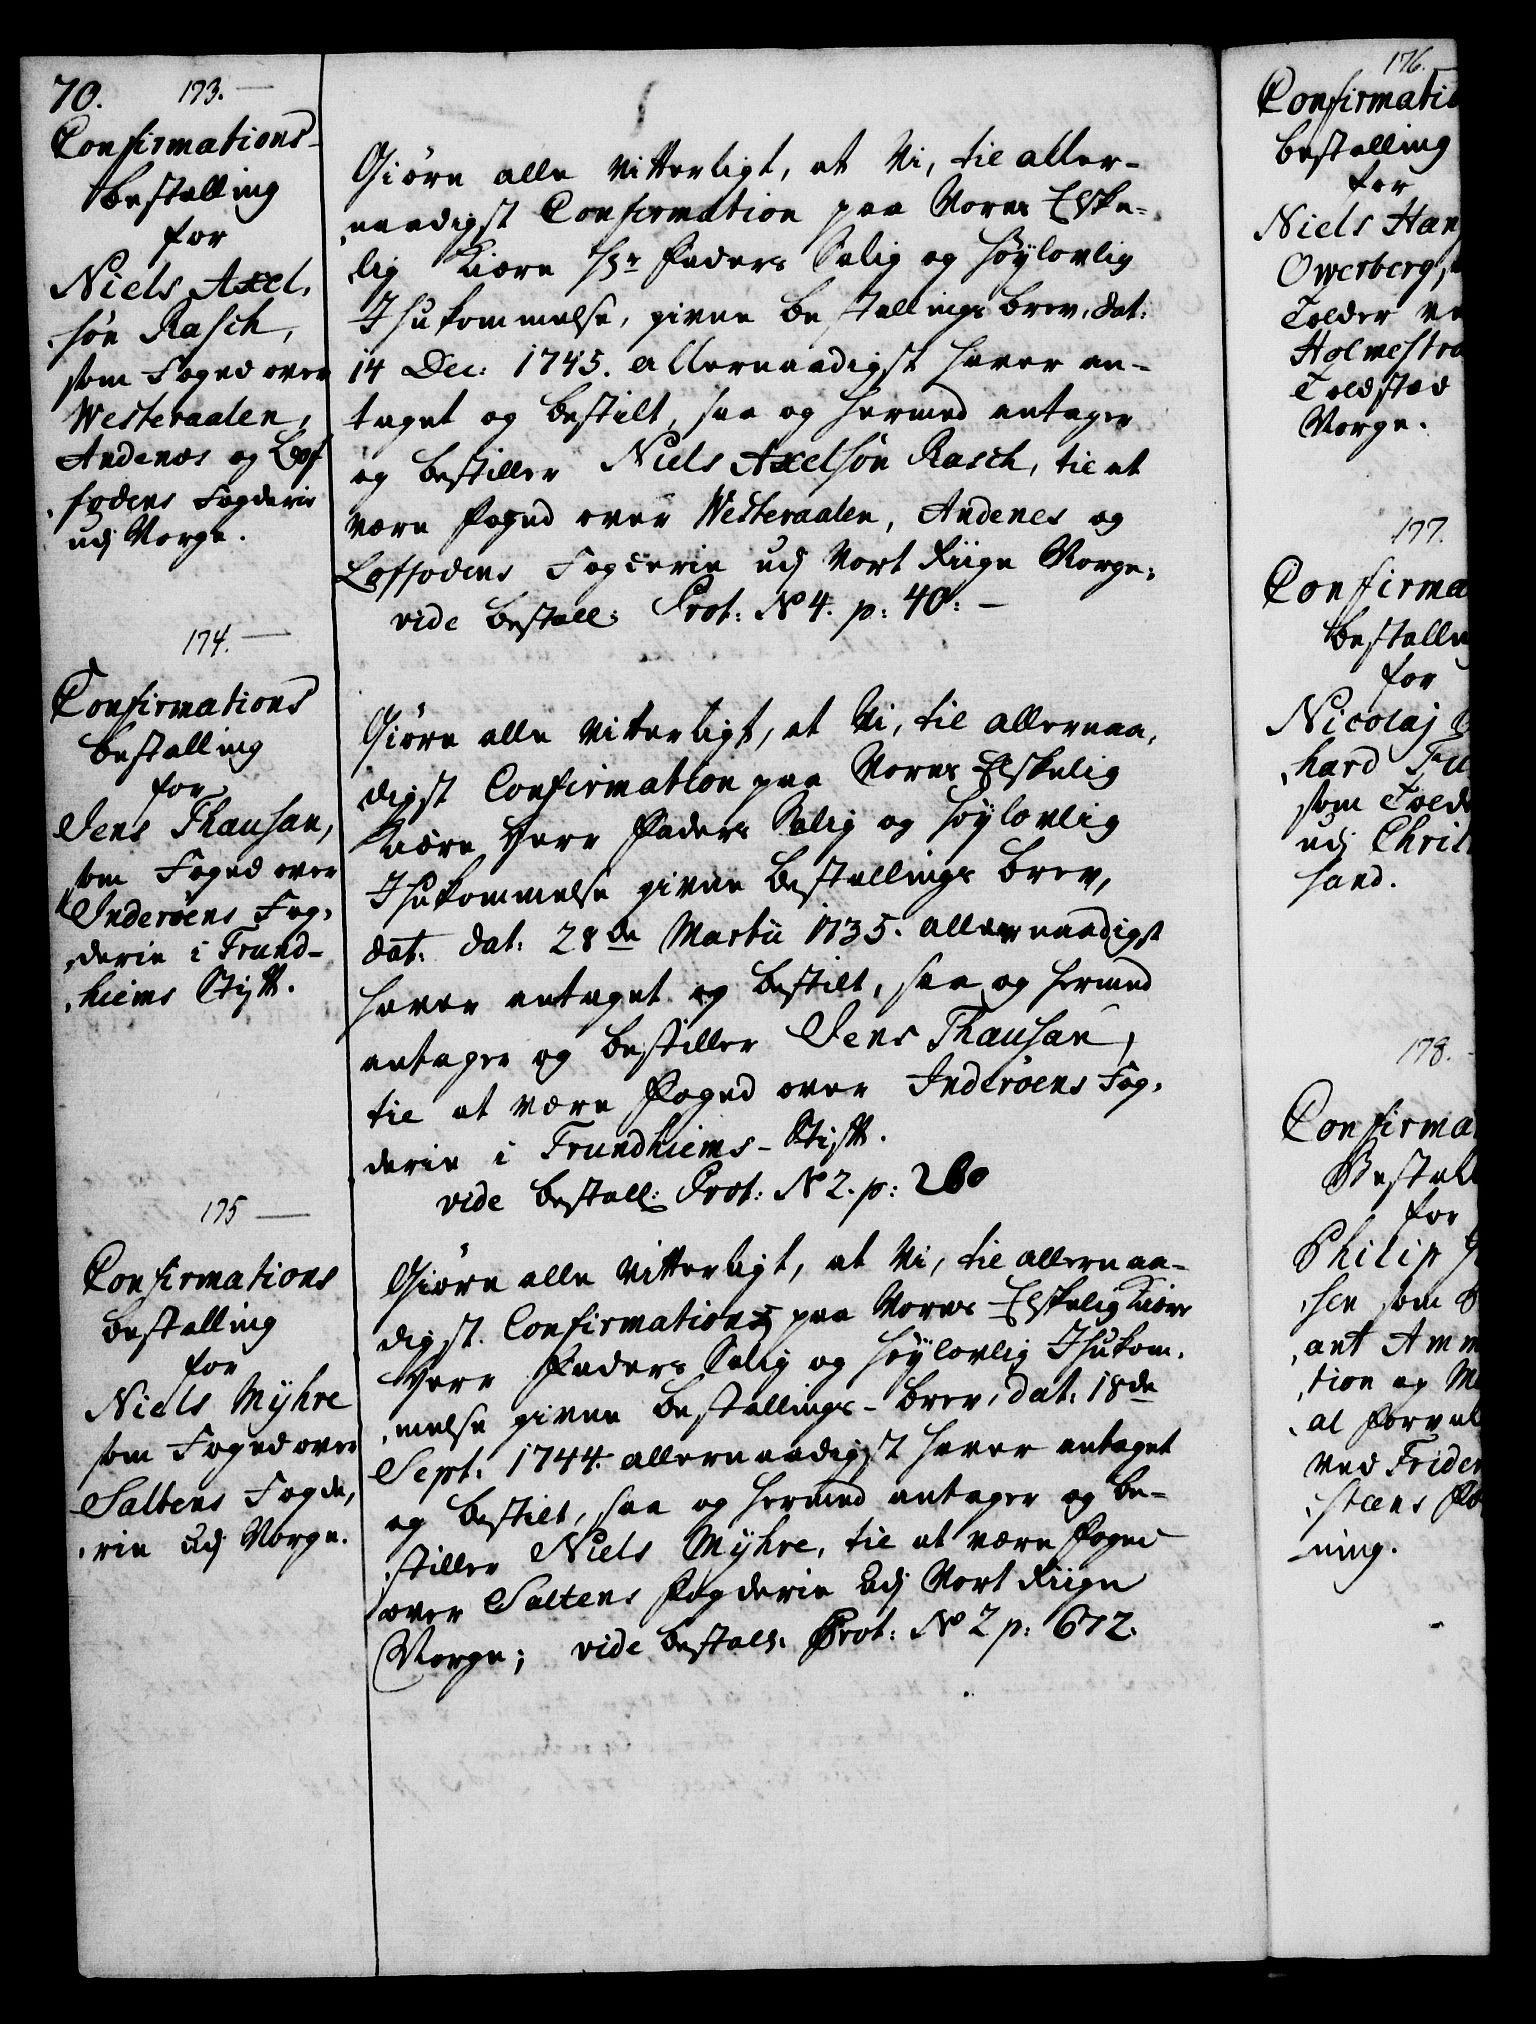 70. 173.
Confirmations-
bestalling
for
Niels Axel,
,søn Rasch,
som Foged over
Westeraalen,
Andenæs og Lof
,fodens Fogderie
udj Norge.
Giøre alle Vitterligt, at Vi, til aller-
,naadigst Confirmation paa Vores Elske-
,lig Kiære Hr Faders Salig og Høylovlig
Ihukommelse, givne bestallings brev, dat:
14 Dec: 1745. allernaadigst haver an-
taget og bestilt, saa og hermed antager
og bestiller Niels Axelsøn Rasch, til at
være Foged over Westeraalen, Andenes og
Loffodens Fogderie udj Vort Riige Norge;
vide bestall: Prot: No 4. p: 40: -
174.
Confirmations
bestalling
for
Jens Thausan,
som Foged over
Inderøens Fog,
,derie i Trund-
,hiems Stift.
Giøre alle Vitterligt, at Vi, til allernaa,
digst Confirmation paa Vores Elskelig
Kiære Herr Faders Salig og Høylovlig
Ihukommelse givne bestallings brev,
dat. dat: 28de Martii 1735. allernaadigst
haver antaget og bestilt, saa og hermed
antager og bestiller Jens Thausan,
til at være Foged over Inderøens Fog,
derie i Trundhiems-Stift.
vide bestall: Prot: No 2. p: 260
175
Confirmations
bestalling
for
Niels Myhre
som Foged over
Saltens Fogde,
,rie udj Norge.
Giøre alle Vitterligt, at Vi, til allernaa-
digst. Confirmation paa Vores Elskelig Kiære
Herr Faders Salig og Høylovlig Ihukom,
,melse givne bestallings-brev, dat: 18de
Sept: 1744. allernaadigst haver antaget
og bestilt, saa og hermed antager og be-
stiller Niels Myhre, til at være Foged
over Saltens Fogderie udj Vort Riige
Norge; vide bestall. Prot: No 2 p: 672.
176.
Confirmatio
bestalling
for
Niels Han
Owerberg,
Tolder ve
Holmestra
Toldsted
Norge.
177.
Confirma
bestallin
for
Nicolaj
,hard
som Told
udj Christ
sand.
178.
Confirma
Bestal
for
Philip
,sen som
,ant Amm
,tion og Ma
,al Forval
ved Frider
,steens Fæ
,ning.